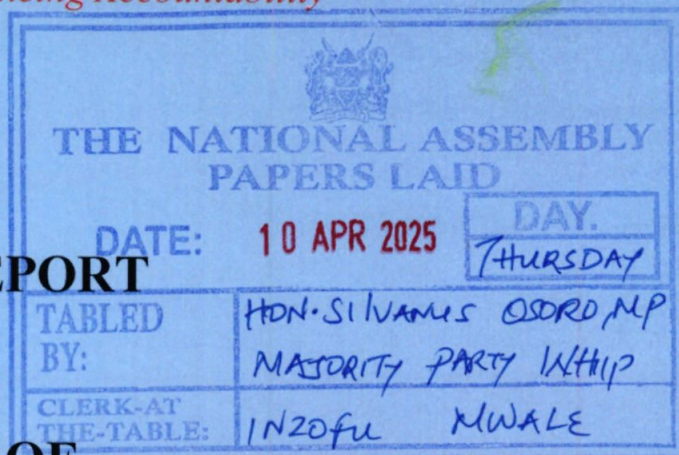 Accountability
THE NATIONAL ASSEMBLY
PAPERS LAID
DATE: 10 APR 2025
DAY.
THURSDAY
EPORT
TABLED BY:
HON. SILVANUS OSORO, MP
MAJORITY PARTY WHIP
CLERK-AT THE-TABLE:
INZOFU MWALE
OF